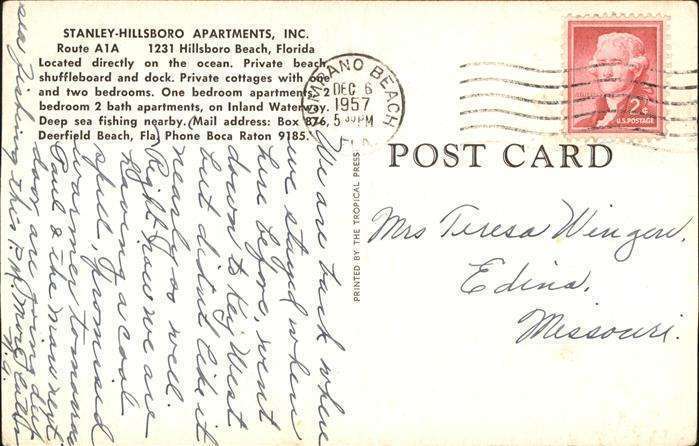 STANLEY-HILLSBORO APARTMENTS, INC.
Route A1A 1231 Hillsboro Beach, Florida
Located directly on the ocean. Private beach,
shuffleboard and dock. Private cottages with one
and two bedrooms. One bedroom apartments, 2
bedroom 2 bath apartments, on Inland Waterway.
Deep sea fishing nearby. (Mail address: Box 876,
Deerfield Beach, Fla. Phone Boca Raton 9185.
POMPANO BEACH
DEC 6
1957
5 30 PM
FLA.
2¢
U.S. POSTAGE
POST CARD
PRINTED BY THE TROPICAL PRESS
Mrs Teresa Wingow,
Edina,
Missouri.
We are back where
we stayed when
here before, went
down to Key West
but didn't like it
nearly so well.
Right now we are
having a cool
spell, promised
warmer tomorrow
Paul & the man next
door are going out
fishing this P.M. More later